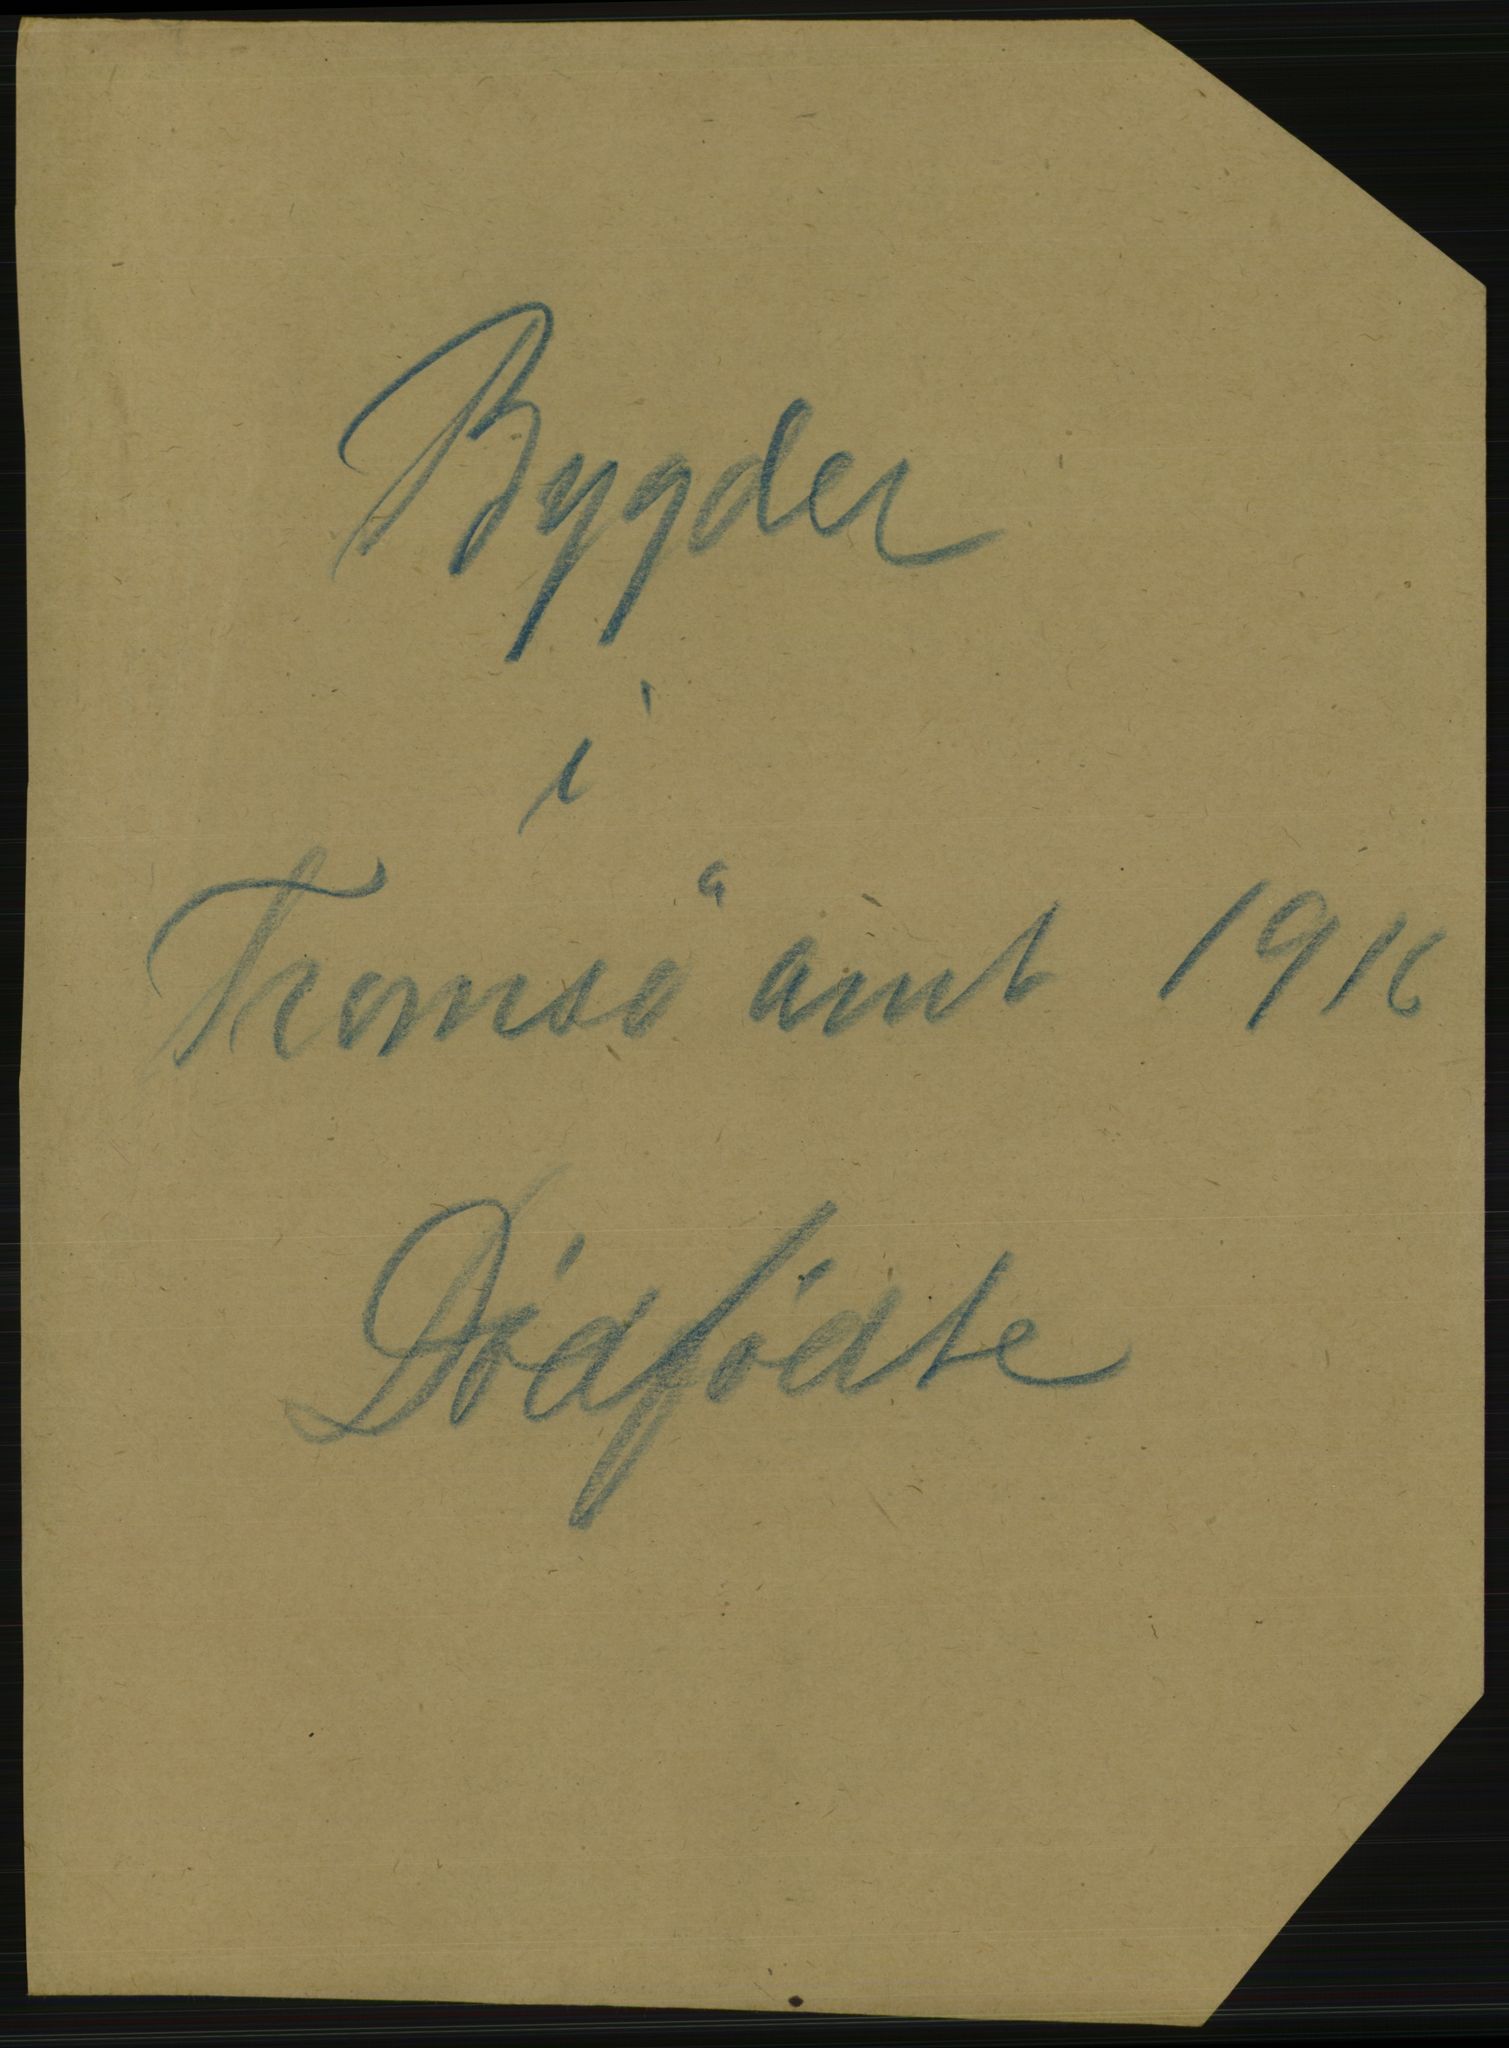 Bygder
i
Tromsö amt 1916
Dödfödte